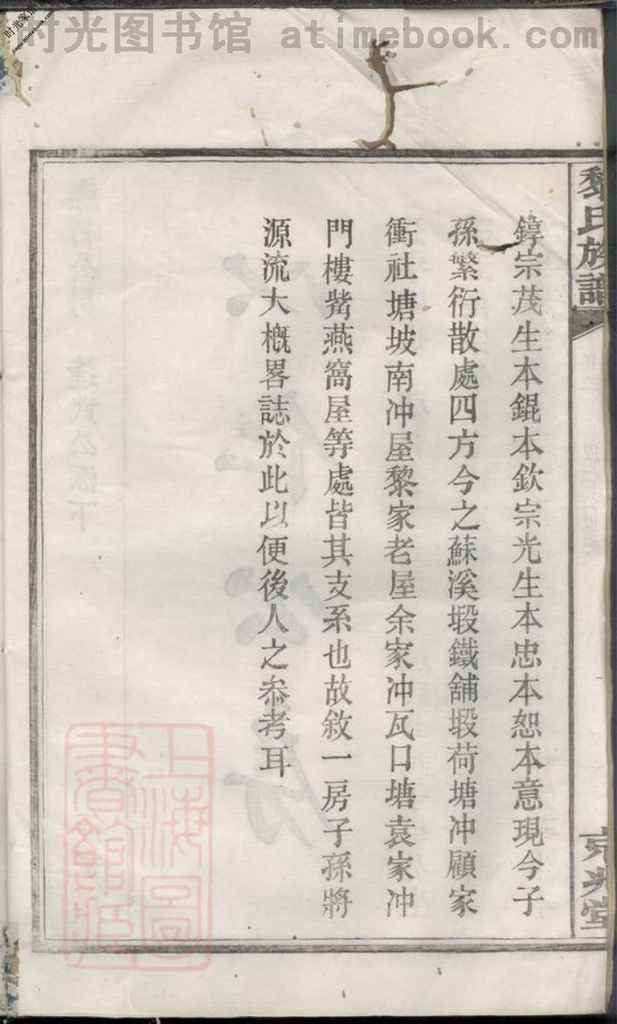 时光图书馆 atimebook.com
黎氏族譜
錞宗茂生本錕本欽宗光生本忠本恕本意現今子
孫繁衍散處四方今之蘇溪塅鐵舖塅荷塘冲顧家
衝社塘坡南冲屋黎家老屋余家冲瓦口塘袁家冲
門樓觜燕窩屋等處皆其支系也故敘一房子孫將
源流大概畧誌於此以便後人之叅考耳
上海圖
書館藏